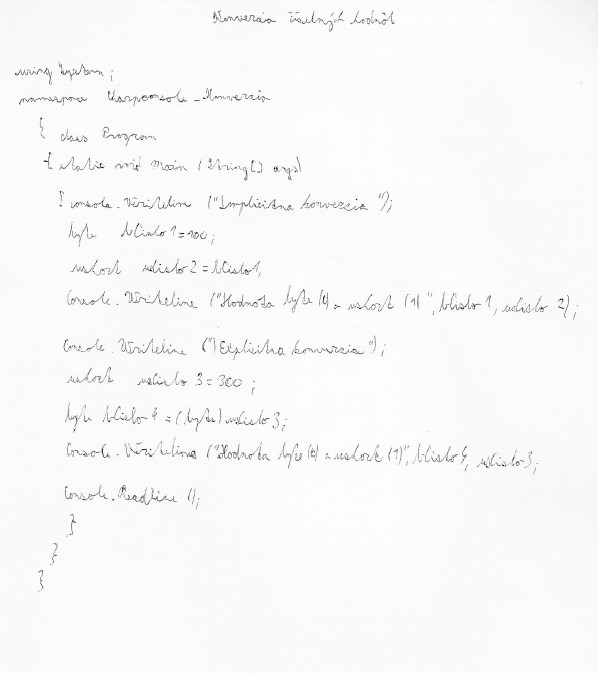 Konverzia číselných hodnôt
using System;
namespace Csharpconsole_Konverzia
{ class Program
{ static void Main (String[] args)
{ console.Writeline ("Implicitna konverzia");
byte bCislo1=100;
ushort usCislo2=bCislo1,
Console.Writeline ("Hodnota byte {0} a ushort {1}", bCislo1, usCislo2);
Console.Writeline ("Explicitna konverzia");
ushort usCislo3=300;
byte bCislo4=(byte)usCislo3;
Console.Writeline ("Hodnota byte {0} a ushort {1}", bCislo4, usCislo3;
Console.Readline ();
}
}
}